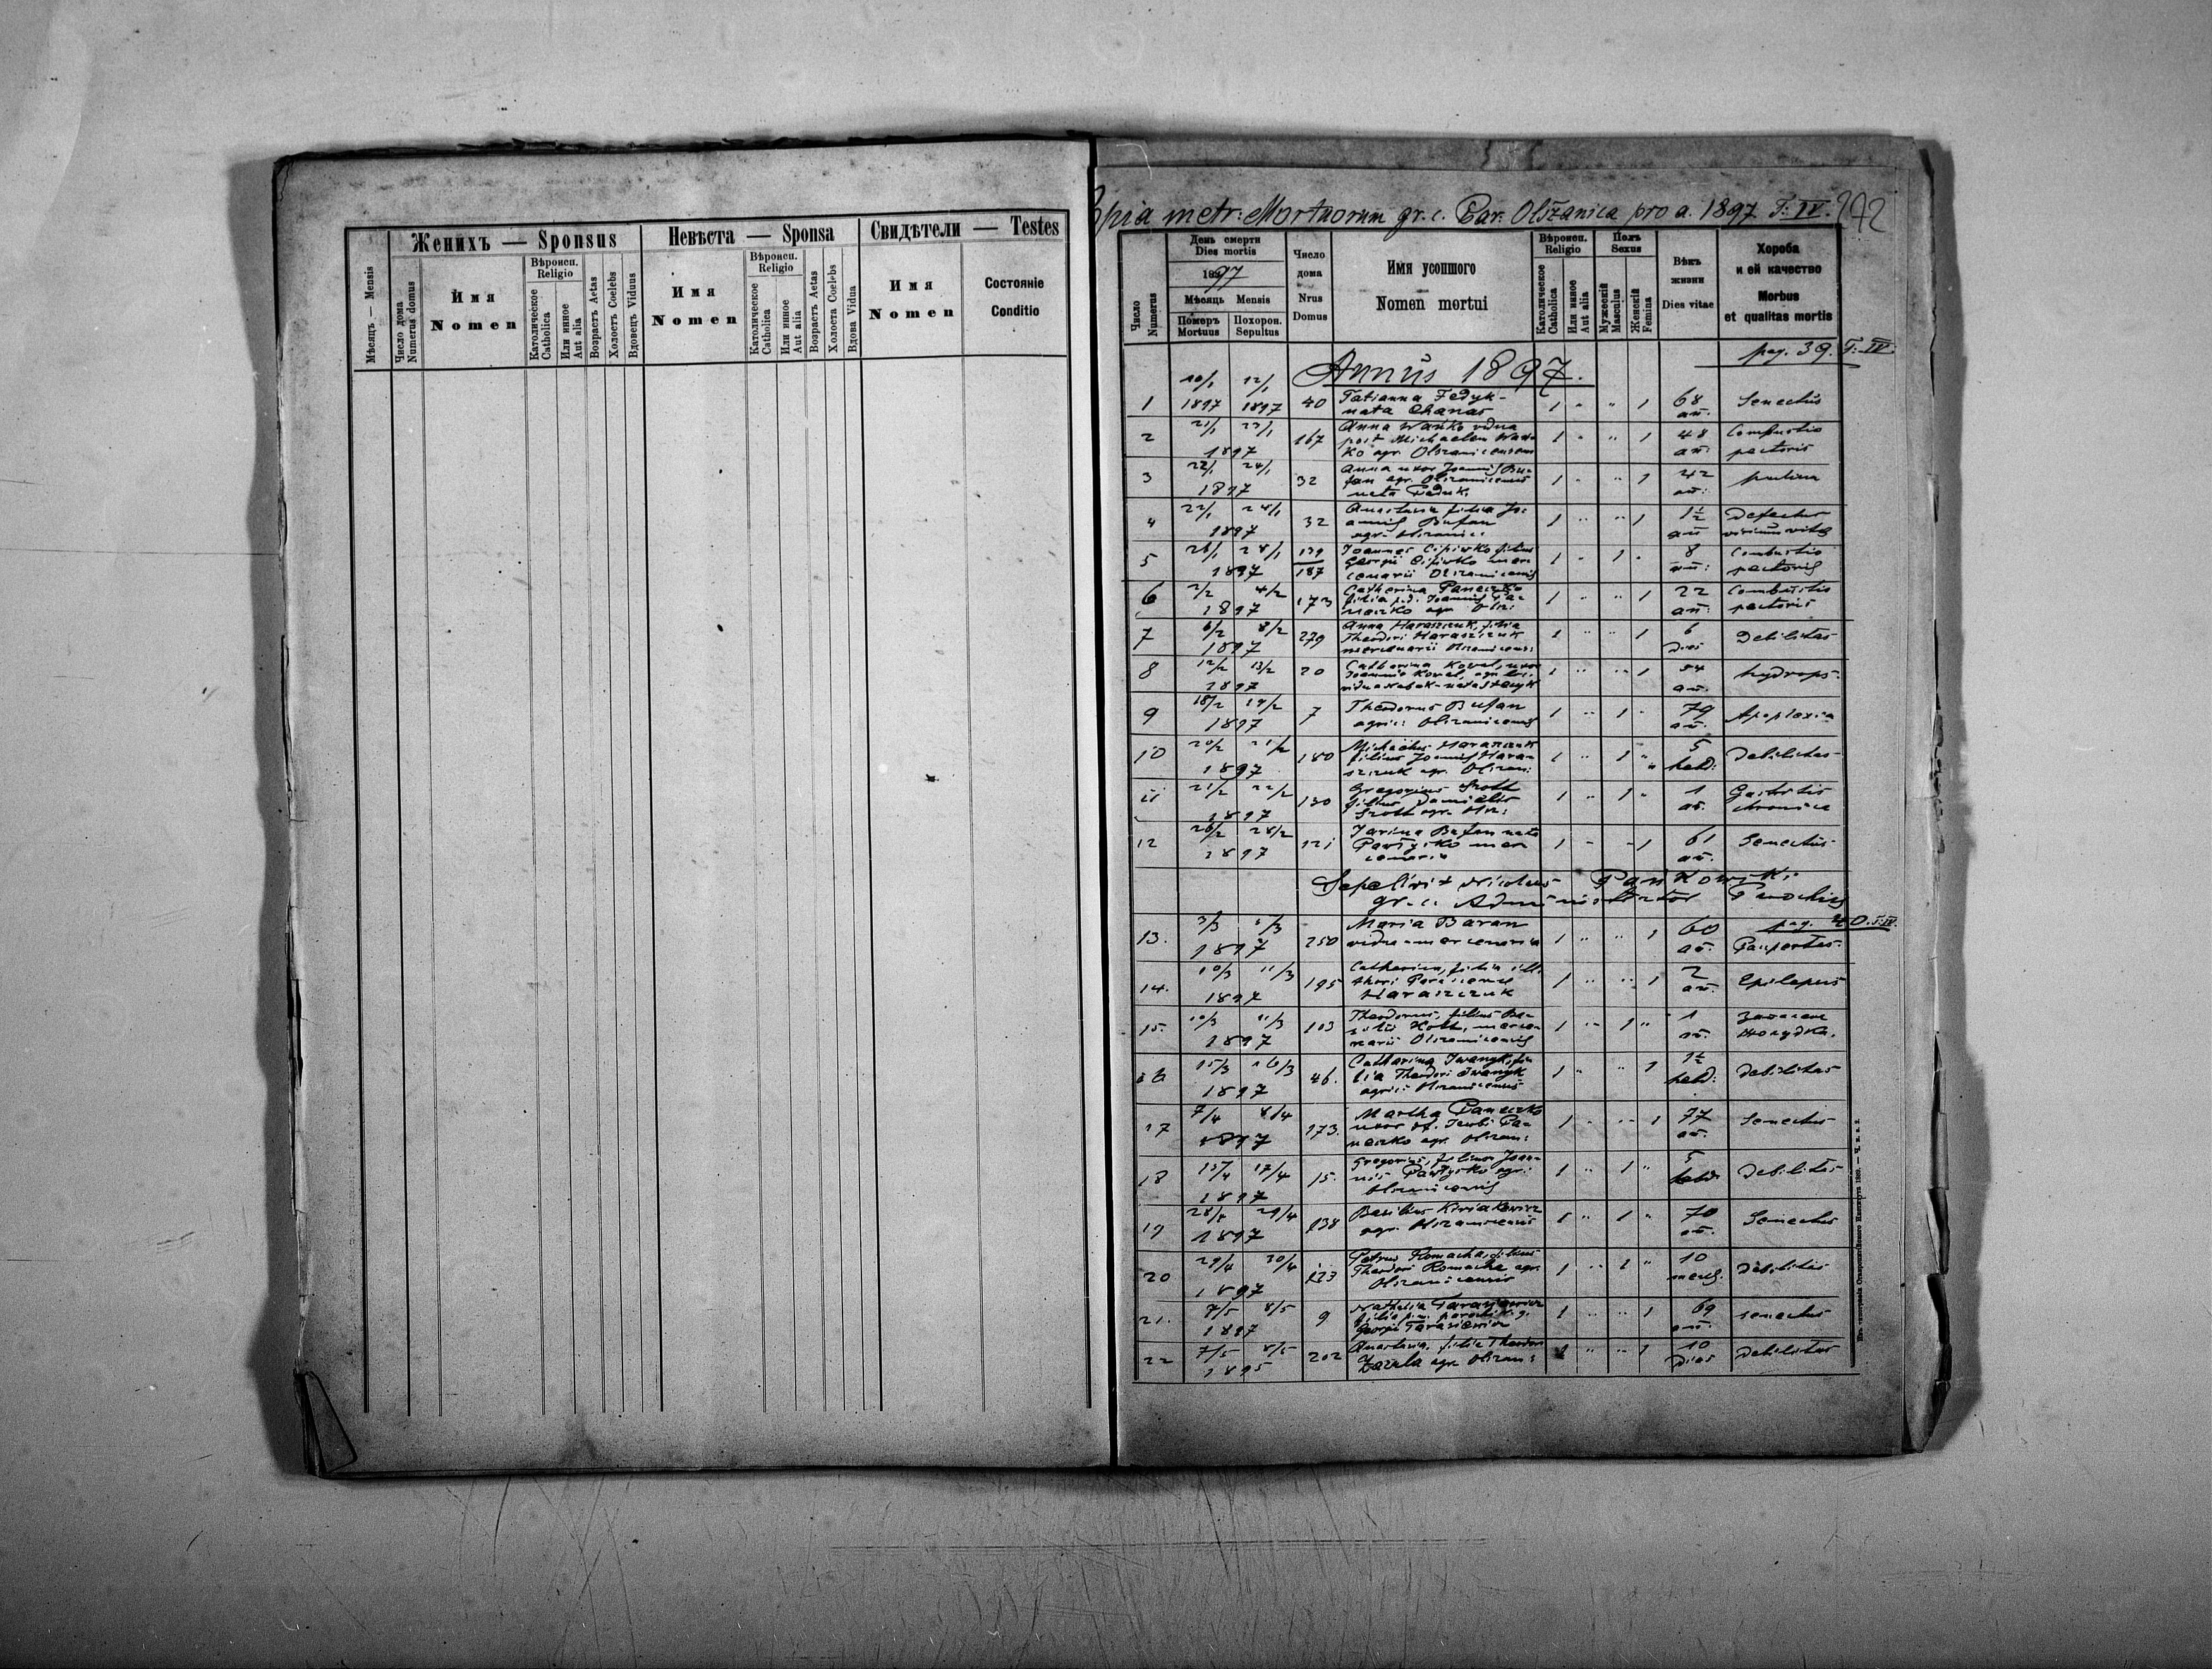 Женихъ — Sponsus
Невѣста — Sponsa
Свидѣтели — Testes
Мѣсяцъ — Mensis
Число дома
Numerus domus
Имя
Nomen
Вѣроисп.
Religio
Католическое
Catholica
Или инное
Aut alia
Возрастъ Aetas
Холостъ Coelebs
Вдовецъ Viduus
Имя
Nomen
Вѣроисп.
Religio
Католическое
Catholica
Или инное
Aut alia
Возрастъ Aetas
Холоста Coelebs
Вдова Vidua
Имя
Nomen
Состояніе
Conditio
metr: Mortuorum gr. c. Par. Olszanica pro a. 1897. T: IV. 272
Число
Numerus
День смерти
Dies mortis
1897
Мѣсяць Mensis
Померъ
Mortuus
Похорон.
Sepultus
Число
дома
Nrus
Domus
Имя усопшого
Nomen mortui
Вѣроисп.
Religio
Католическое
Catholica
Или инное
Aut alia
Полъ
Sexus
Мужескій
Masculus
Женскій
Femina
Вѣкъ
жизни
Dies vitae
Хороба
и ей качество
Morbus
et qualitas mortis
pag. 39. T: IV.
Annus 1897.
1 10/1 1897 12/1 1897 40 Tatianna Fedyk - nata Chanas 1 " " 1 68 an. Senectus
2 21/1 23/1 1897 167 Anna Wańko vidua post Michaelem Wańko agr. Olszanicensem 1 " " 1 48 an. Combustio pectoris
3 22/1 24/1 1897 32 Anna uxor Joannis Bufan agr. Olszanicensis nata Feduk 1 " " 1 42 an:
4 22/1 24/1 1897 32 Anastasia filia Joannis Bufan agr. 1 " " 1 1½ an Defectus virium vitae
5 26/1 28/1 1897 139 187 Joannes filius Georgii mercenarii Olszanicensis 1 " 1 " 8 an: Combustio pectoris
6 2/2 4/2 1897 173 Catharina Paneczko filia Joannis Paneczko agr. Olsz: 1 " " 1 22 an: Combustio pectoris
7 6/2 8/2 1897 279 Anna Haraszczuk, filia Theodori Haraszczuk mercenarii Olszanicens: 1 " " 1 6 dies Debilitas
8 12/2 13/2 1897 20 Catharina Kowal, uxor Joannis Kowal, agr. 1 " " 1 54 an. hydrops
9 18/2 19/2 1897 7 Theodorus Bufan agric: Olszanicensis 1 " 1 " 79 an. Apoplexia
10 20/2 21/2 1897 180 Michaelus Haraszczuk filius Joannis Haraszczuk agr. Olszan: 1 " 1 " 5 hebd: Debilitas
11 21/2 22/2 1897 130 Gregorius Szott filius Danielis Szott agr. Olsz: 1 " 1 " 1 an. Gastritis chronica
12 26/2 28/2 1897 121 Jarina Bufan nata mercenaria 1 " " 1 61 an. Senectus
Sepelivit Nicolaus Pańkowski
gr. c. Administrator Parochiae
pag. 40. T: IV.
13. 3/3 5/3 1897 250 Maria Baran vidua mercenaria 1 " " 1 60 an.
14. 10/3 11/3 1897 195 Catharina, filia Haraszczuk 1 " " 1 2 an. Epilepsis
15. 10/3 11/3 1897 103 Theodorus, filius Basilii mercenarii Olszanicensis 1 " 1 " 1 an. жолудка.
16 15/3 16/3 1897 46. Catharina Iwanyk, filia Theodori Iwanyk agric: Olszanicensis 1 " " 1 1½ hebd: Debilitas
17 7/4 8/4 1897 173. Martha Paneczko uxor Jacobi Paneczko agr. Olszan: 1 " " 1 77 an. Senectus
18 15/4 17/4 1897 15. Gregorius, filius Joannis agr: Olszanicensis 1 " 1 " 5 hebd. Debilitas
19 28/4 29/4 1897 138 Basilius Kiriakowicz agr. Olszanicensis 1 " 1 " 70 an. Senectus
20 29/4 30/4 1897 123 Petrus Romacha, filius Theodori Romacha agr. Olszanicensis 1 " 1 " 10 mens. Debilitas
21. 7/5 8/5 1897 9 Nathalia Tarasiewicz filia Georgii Tarasiewicz 1 " " 1 69 an. senectus
22 7/5 8/5 1895 202 Anastasia, filia Theodori Zazula agr. Olszan: 1 " " 1 10 dies Debilitas